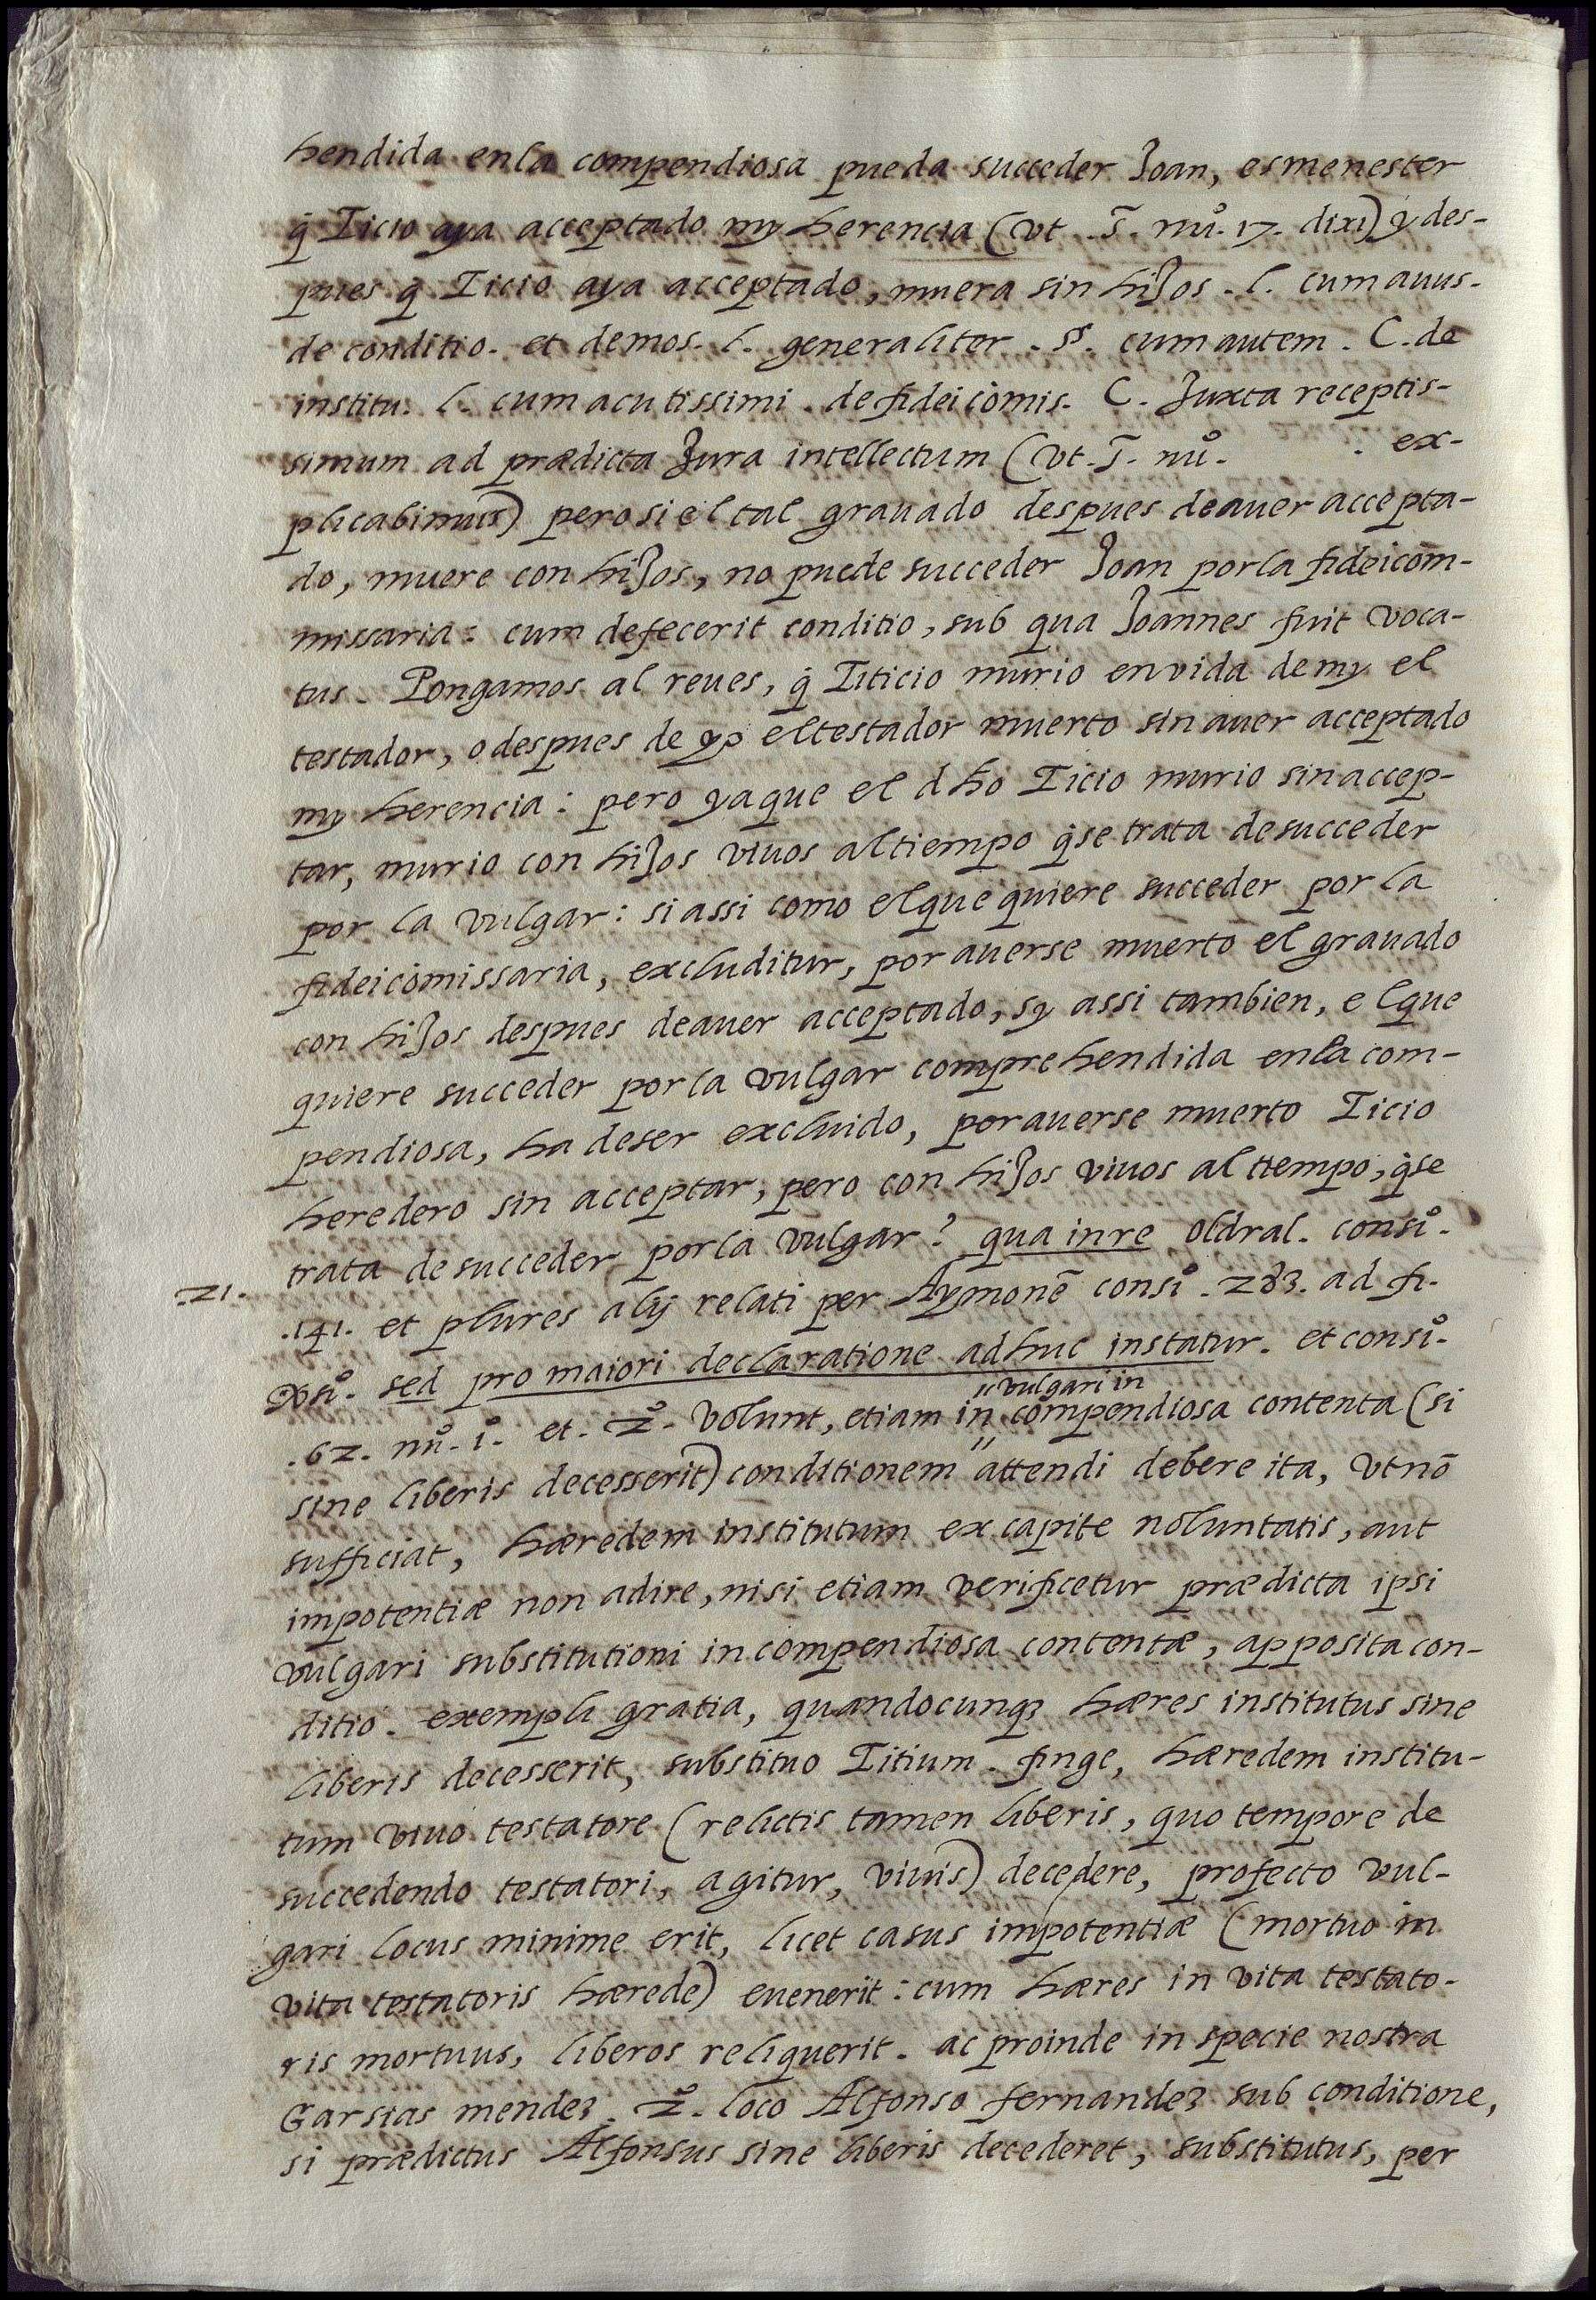 hendida enla compendiosa pueda succeder Joan, es menester
q̃ Ticio aya acceptado my herencia (vt .s̄. nu̐. 17. dixi) y des-
pues q̃ Ticio aya acceptado, muera sin hijos. l. cum auus.
de conditio. et demos. l. generaliter. §. cum autem. C. de
institu. l. cum acutissimi. de fideicõmis. C. Juxta receptis-
simum ad prædicta Jura intellectum (vt. s̄. nu̐. . ex-
plicabimus) pero si el tal grauado despues de auer accepta-
do, muere con hijos, no puede succeder Joan por la fideicom-
missaria: cum defecerit conditio, sub qua Joannes fuit voca-
tus. Pongamos al reues, q̃ Titicio murio en vida de my el
testador, o despues de yo el testador muerto sin auer acceptado
my herencia: pero ya que el dho Ticio murio sin accep-
tar, murio con hijos viuos al tiempo q̃ se trata de succeder
por la vulgar: si assi como el que quiere succeder por la
fideicõmissaria, excluditur, por auerse muerto el grauado
con hijos despues de auer acceptado, sy assi tambien, el que
quiere succeder por la vulgar comprehendida enla com-
pendiosa, ha de ser excluido, por auerse muerto Ticio
heredero sin acceptar, pero con hijos viuos al tiempo, q̃ se
trata de succeder por la vulgar? qua in re oldral. consi̊.
.21.
.141. et plures alij relati per Aymonē consi̊. 283. ad fi.
vsi̊. sed pro maiori declaratione adhuc instatur. et consi̊.
.62. nu̐. 1̊. et. 2̊. volunt, etiam in compendiosa contenta (si
" vulgari in
sine liberis decesserit) conditionem " attendi debere ita, vt nō
sufficiat, hæredem institutum ex capite noluntatis, aut
impotentiæ non adire, nisi etiam verificetur prædicta ipsi
vulgari substitutioni in compendiosa contentæ, apposita con-
ditio. exempli gratia, quandocunq; hæres institutus sine
liberis decesserit, substituo Titium. finge, hæredem institu-
tum viuo testatore (relictis tamen liberis, quo tempore de
succedendo testatori, agitur, viuis) decedere, profecto vul-
gari locus minime erit, licet casus impotentiæ (mortuo in
vita testatoris hærede) euenerit: cum hæres in vita testato-
ris mortuus, liberos reliquerit. ac proinde in specie nostra
Garsias mendez. 2̊. loco Alfonso fernandez sub conditione,
si prædictus Alfonsus sine liberis decederet, substitutus, per